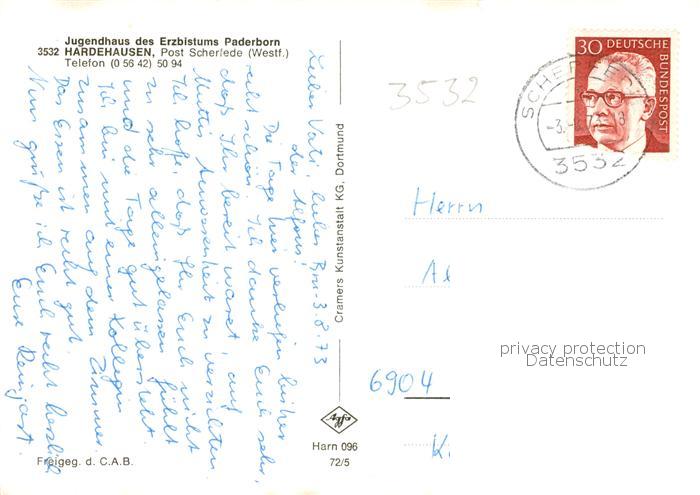 Jugendhaus des Erzbistums Paderborn
3532 HARDEHAUSEN, Post Scherfede (Westf.)
Telefon (0 56 42) 50 94
3.8.73
Lieber Vati, lieber Bru-
der Alfons!
Die Tage hier verliefen bisher
recht schön. Ich danke Euch sehr,
daß Ihr bereit waret, auf
Mutters Anwesenheit zu verzichten.
Ich hoffe, daß Ihr Euch nicht
zu sehr alleingelassen fühlt
und die Tage gut übersteht.
Ich bin mit einer Kollegin
zusammen auf dem Zimmer.
Das Essen ist recht gut.
Nun grüße ich Euch recht herzlich
Eure
Cramers Kunstanstalt KG, Dortmund
Agfa
Harn 096
72/5
Freigeg. d. C.A.B.
3532
30 DEUTSCHE
BUNDESPOST
SCHERFEDE
3532
Herrn
Al
6904
Ki
privacy protection
Datenschutz